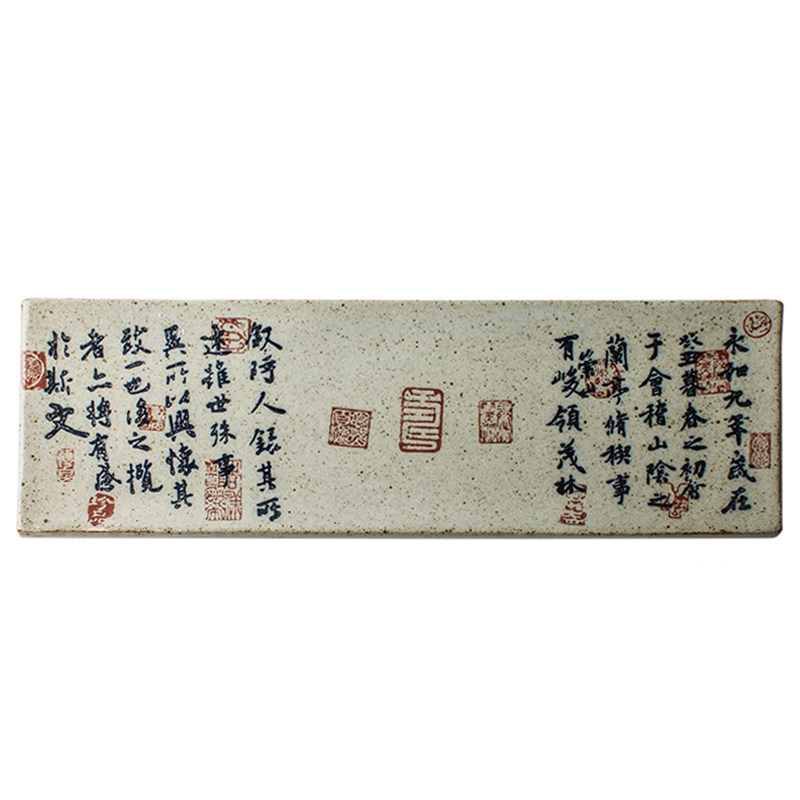 永和九年歲在
癸丑暮春之初會
于會稽山陰之
蘭亭脩稧事
有崇山峻領茂林
叙時人錄其所
述雖世殊事
異所以興懷其
致一也後之攬
者亦將有感
於斯文